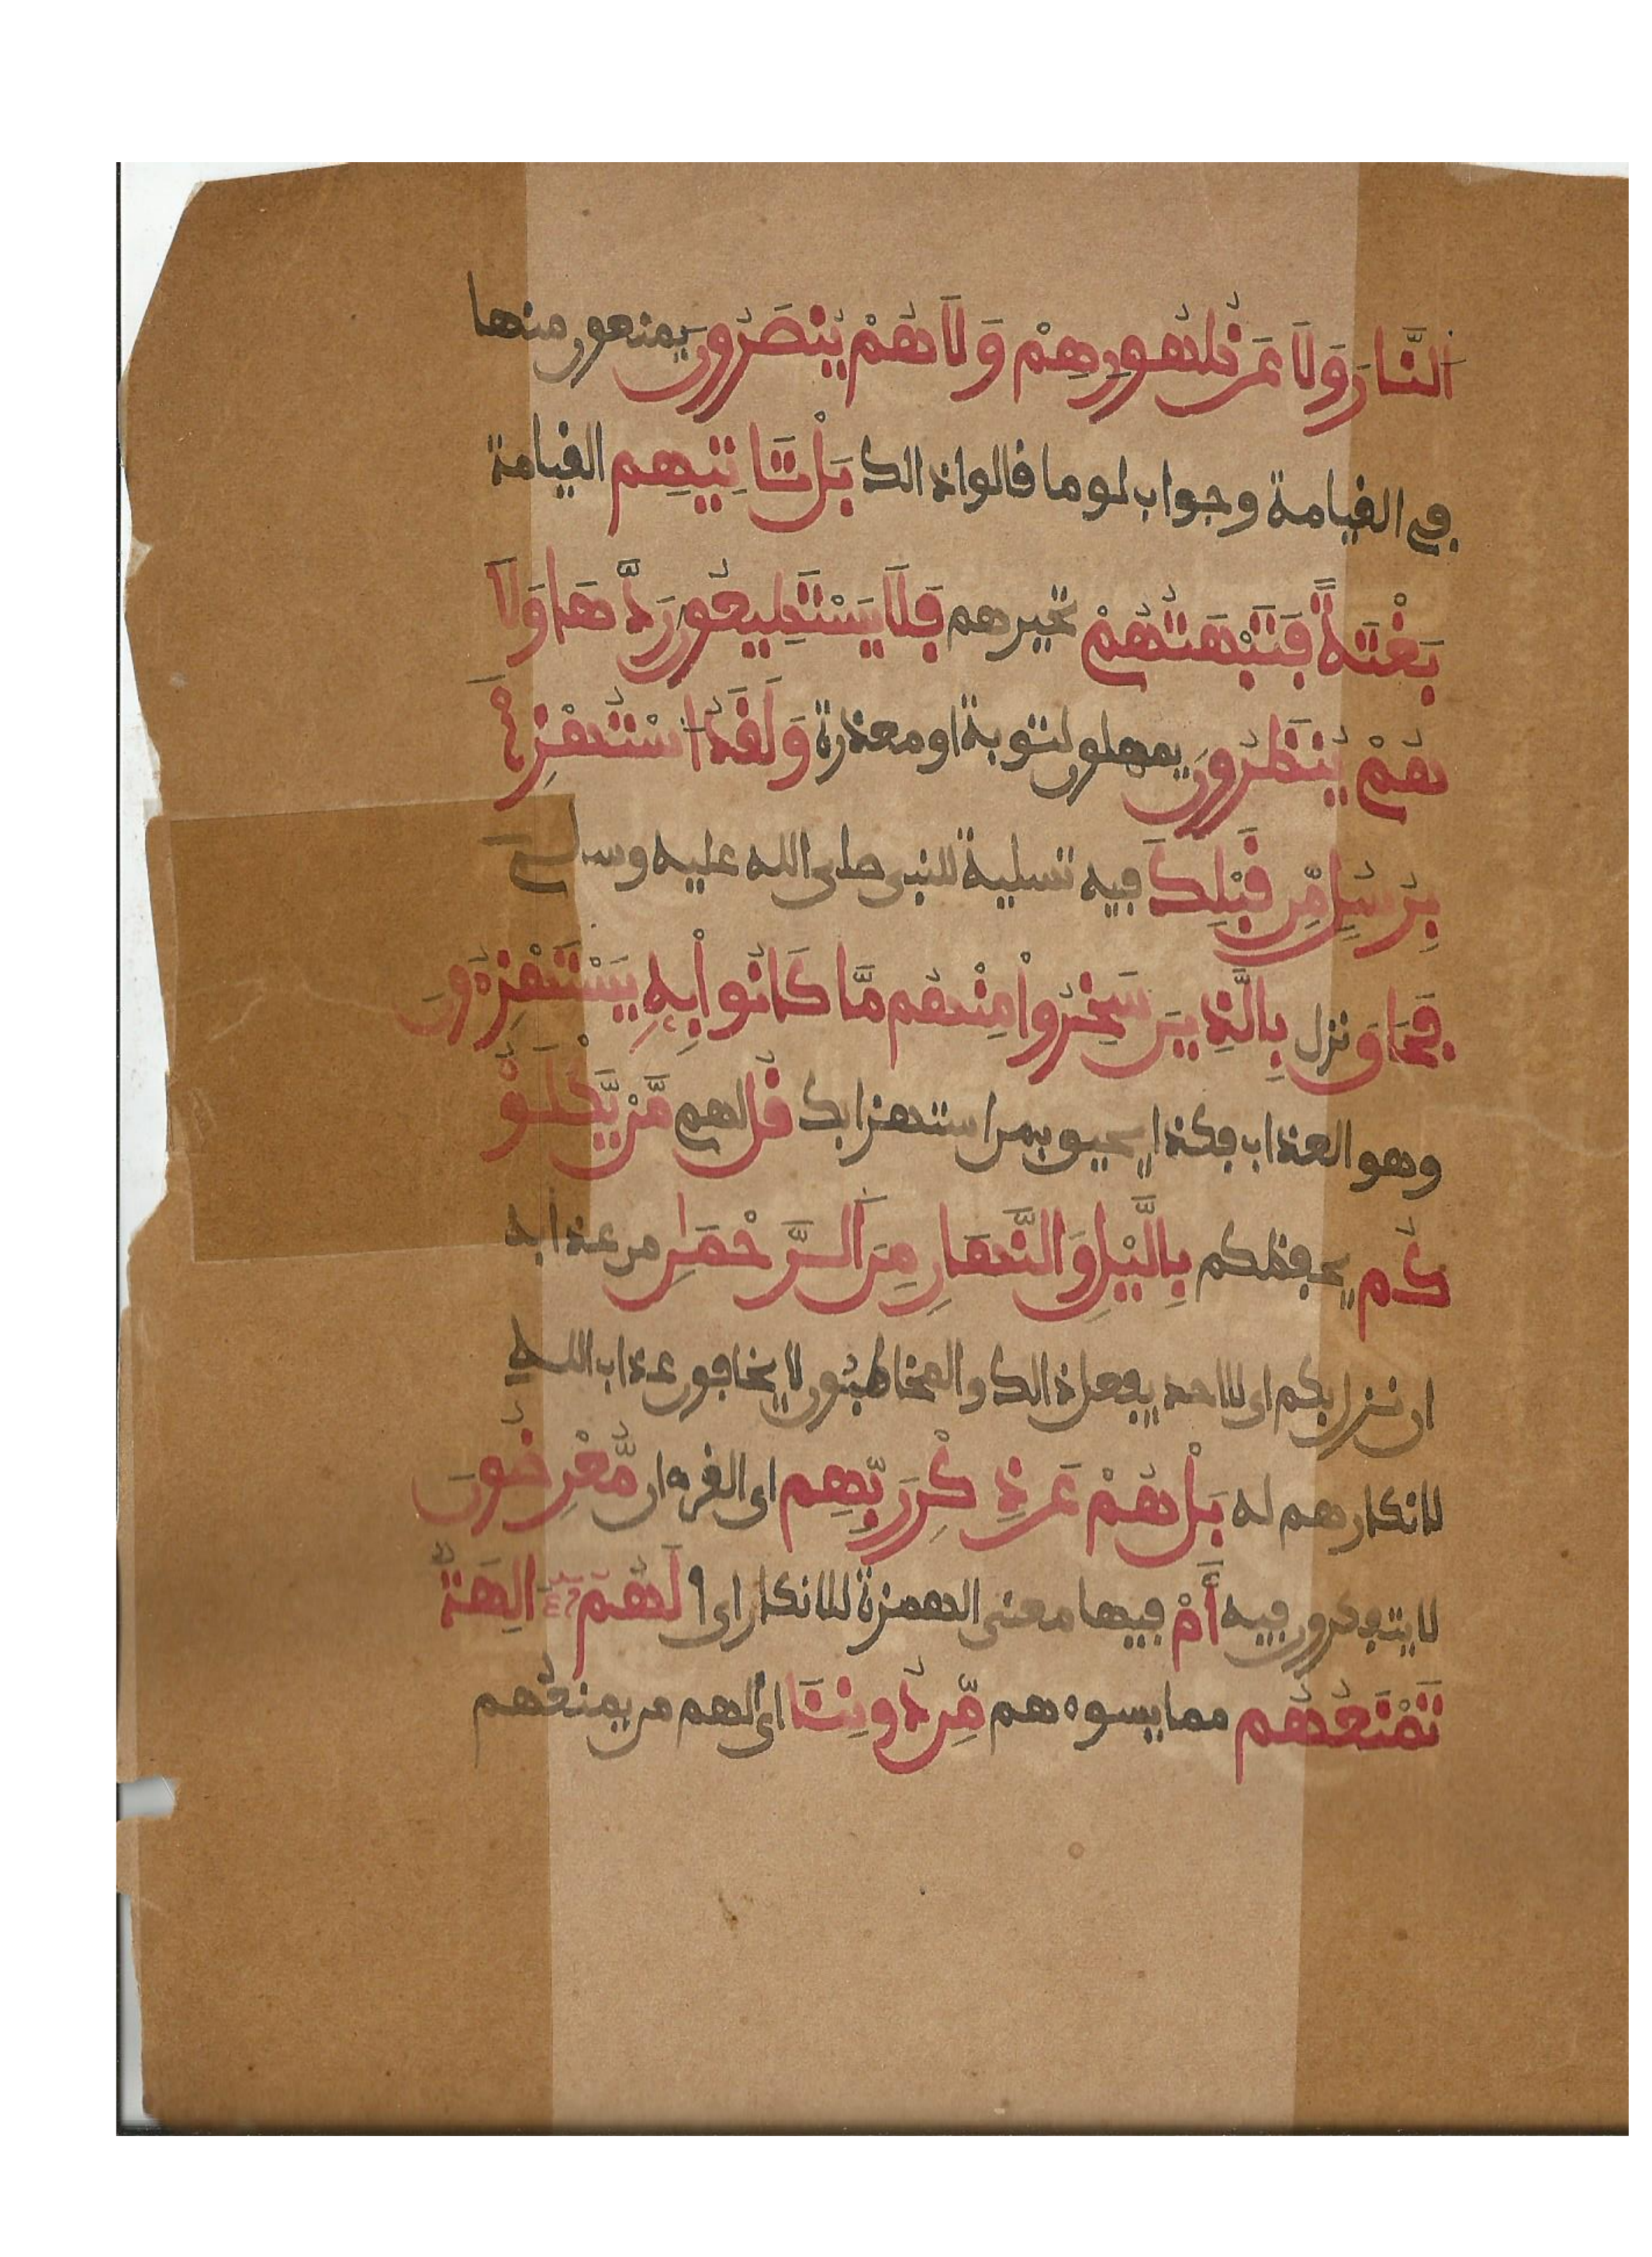 اَلنَّارَ وَلَا عَن ظُهُورِهِمْ وَلَا هُمْ يُنصَرُونَ يمنعون منها
في القيامة وجواب لو ما قالوا ذالك بَلْ تَاتِيهِم القيامة
بَغْتَةً فَتَبْهَتُهُمْ تحيرهم فَلَا يَسْتَطِيعُونَ رَدَّهَا وَلَا
هُمْ يُنظَرُونَ يمهلون لتوبة او معذرة وَلَقَدُ اسْتُهْزِئَ
بِرُسُلٍ مِّن قَبْلِكَ فيه تسلية للنبي صلى الله عليه وسلم
فَحَاقَ نزل بِالَّذِينَ سَخِرُواْ مِنْهُم مَّا كَانُواْ بِهِ يَسْتَهْزِءُونَ
وهو العذاب فكذا يحيق بمن استهزا بك قُلْ لهم مَّنْ يَّكْلَؤُ
كُم يحفظكم بِالَّيْلِ وَالنَّهَارِ مِنَ اَلرَّحْمَٰنِ من عذابه
ان نزل بكم اى لا احد يفعل ذالك والمخاطبون لا يخافون عذاب الله
لانكارهم له بَلْ هُمْ عَن ذِكْرِ رَبِّهِم اى القرءان مُّعْرِضُونَ
لا يتفكرون فيه أَمْ فيها معنى الهمزة للانكار اى ا لَهُمُ ءَالِهَةٌ
تَمْنَعُهُم مما يسوءهم مِّن دُونِنَا اى الهم من يمنعهم